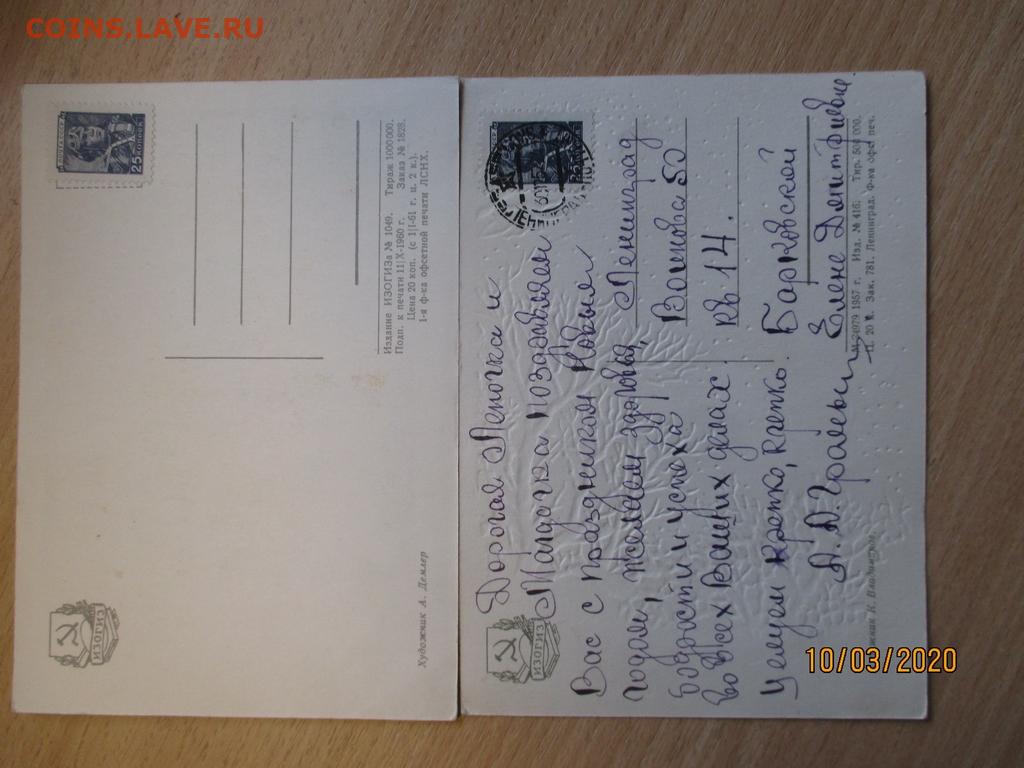 COINS.LAVE.RU
25
ИЗОГИЗ
Художник А. Демлер
Издание ИЗОГИЗа № 1049. Тираж 1000000.
Подп. к печати 11/X-1960 г. Заказ № 1828.
Цена 20 коп. (с 1/I-61 г. 2 к.).
1-я ф-ка офсетной печати ЛСНХ.
ИЗОГИЗ
Дорогая Леночка и
Мадочка поздравляем
Вас с праздником Новым
годом, желаем здоровья,
бодрости и успеха
во всех Ваших делах.
Целуем крепко, крепко, крепко.
Ленинград
Воинова 50
кв 14.
Барковской
Елене Дмитриевне
24979 1957 г. Изд. № 416. Тир. 500 000.
Зак. 781. Ленинград. Ф-ка офсет печ.
Н. Владимиров.
10/03/2020